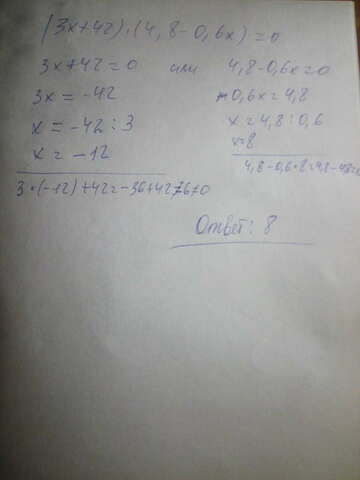 (3x+42)·(4,8-0,6x)=0
3x+42=0 или 4,8-0,6x=0
3x=-42 -0,6x=4,8
x=-42:3 x=4,8:0,6
x=-12 x=8
3·(-12)+42=-36+42=6≠0 4,8-0,6·8=4,8-4,8=0
Ответ: 8